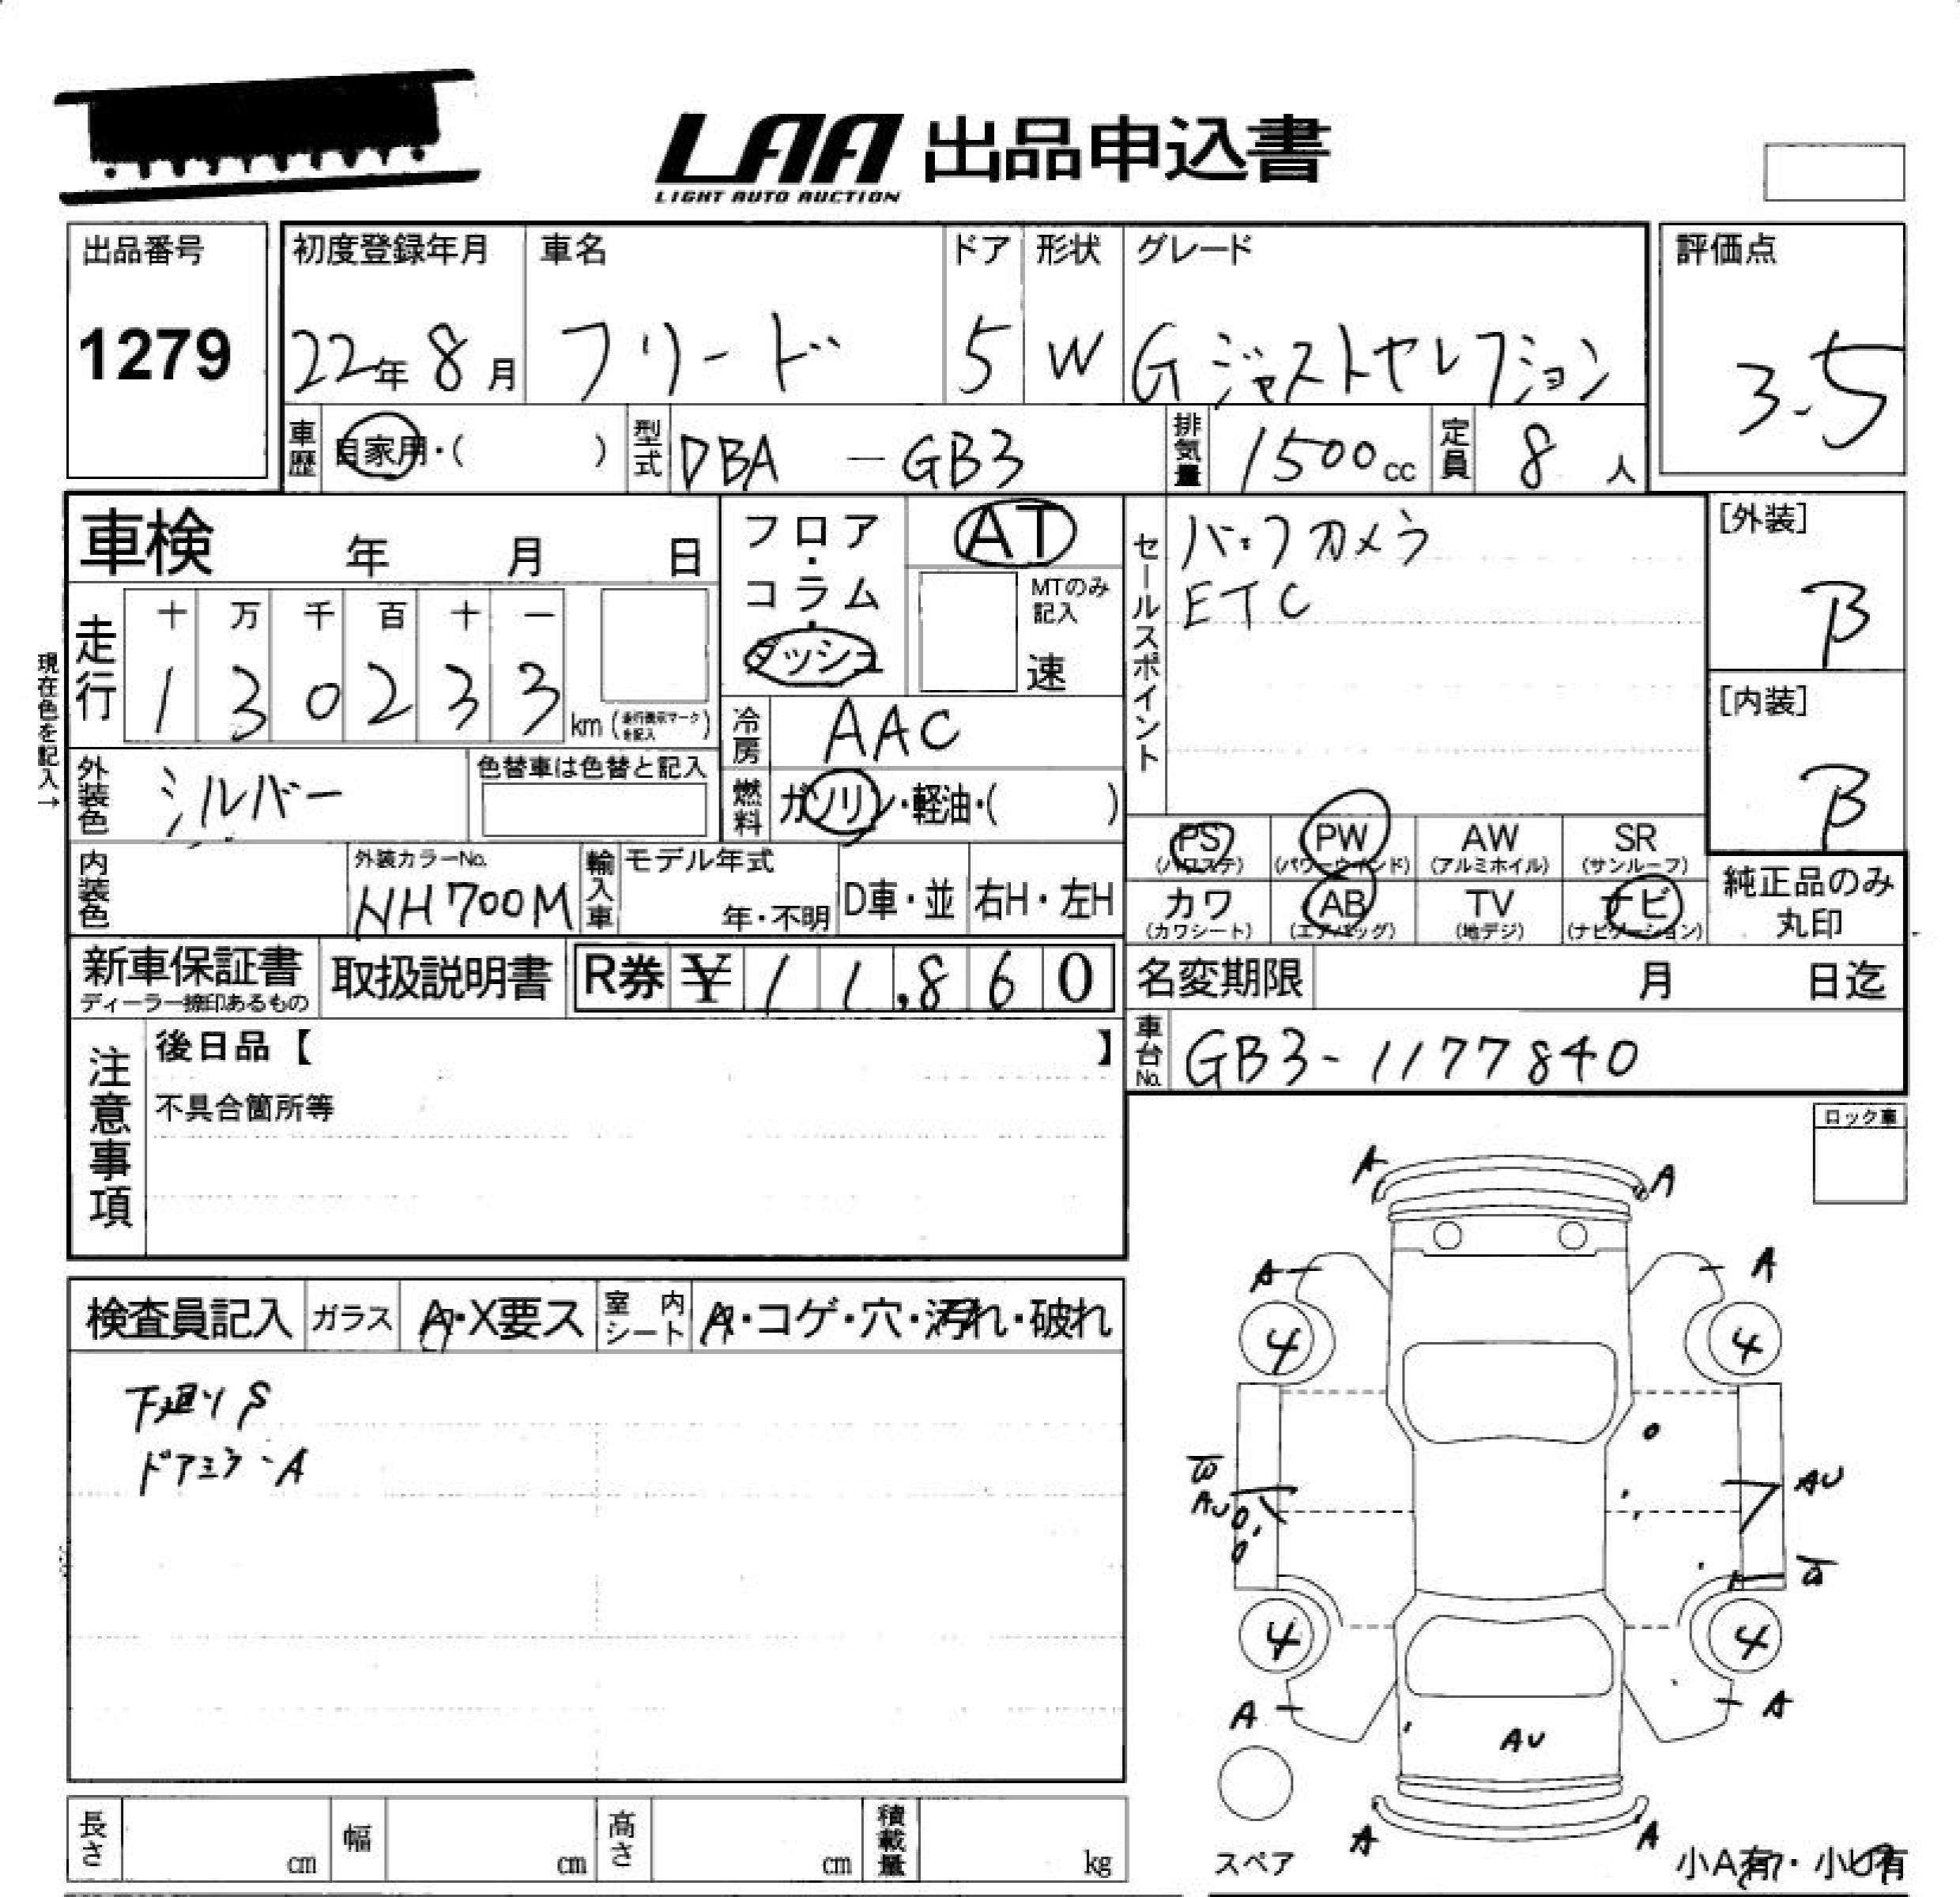 LAA 出品申込書
LIGHT AUTO AUCTION
出品番号
1279
初度登録年月
22年 8月
車名
フリード
ドア
5
形状
W
グレード
G ジャストセレクション
評価点
3.5
車歴
自家用・( )
型式
DBA - GB3
排気量
1500cc
定員
8 人
車検 年 月 日
フロア・コラム・ダッシュ
AT
MTのみ記入
速
セールスポイント
バックカメラ
ETC
[外装]
B
[内装]
B
現在色を記入→
走行
十 万 千 百 十 一
1 3 0 2 3 3 km (走行表示マークを記入)
冷房
AAC
外装色
シルバー
色替車は色替と記入
燃料
ガソリン・軽油・( )
PS (パワステ)
PW (パワーウインド)
AW (アルミホイル)
SR (サンルーフ)
カワ (カワシート)
AB (エアバッグ)
TV (地デジ)
ナビ (ナビゲーション)
純正品のみ
丸印
内装色
外装カラーNo.
NH700M
輸入車
モデル年式
年・不明
D車・並
右H・左H
新車保証書
ディーラー捺印あるもの
取扱説明書
R券 ¥ 1 1,8 6 0
名変期限 月 日迄
車台No.
GB3-1177840
注意事項
後日品【 】
不具合箇所等
ロック車
検査員記入
ガラス
A・X要ス
室内シート
A・コゲ・穴・汚れ・破れ
下廻りS
ドアミラーA
A A
A A
4 4
W
AU
AU
W
4 4
A A
AU
A A
スペア
小A有・小U有
長さ cm
幅 cm
高さ cm
積載量 kg